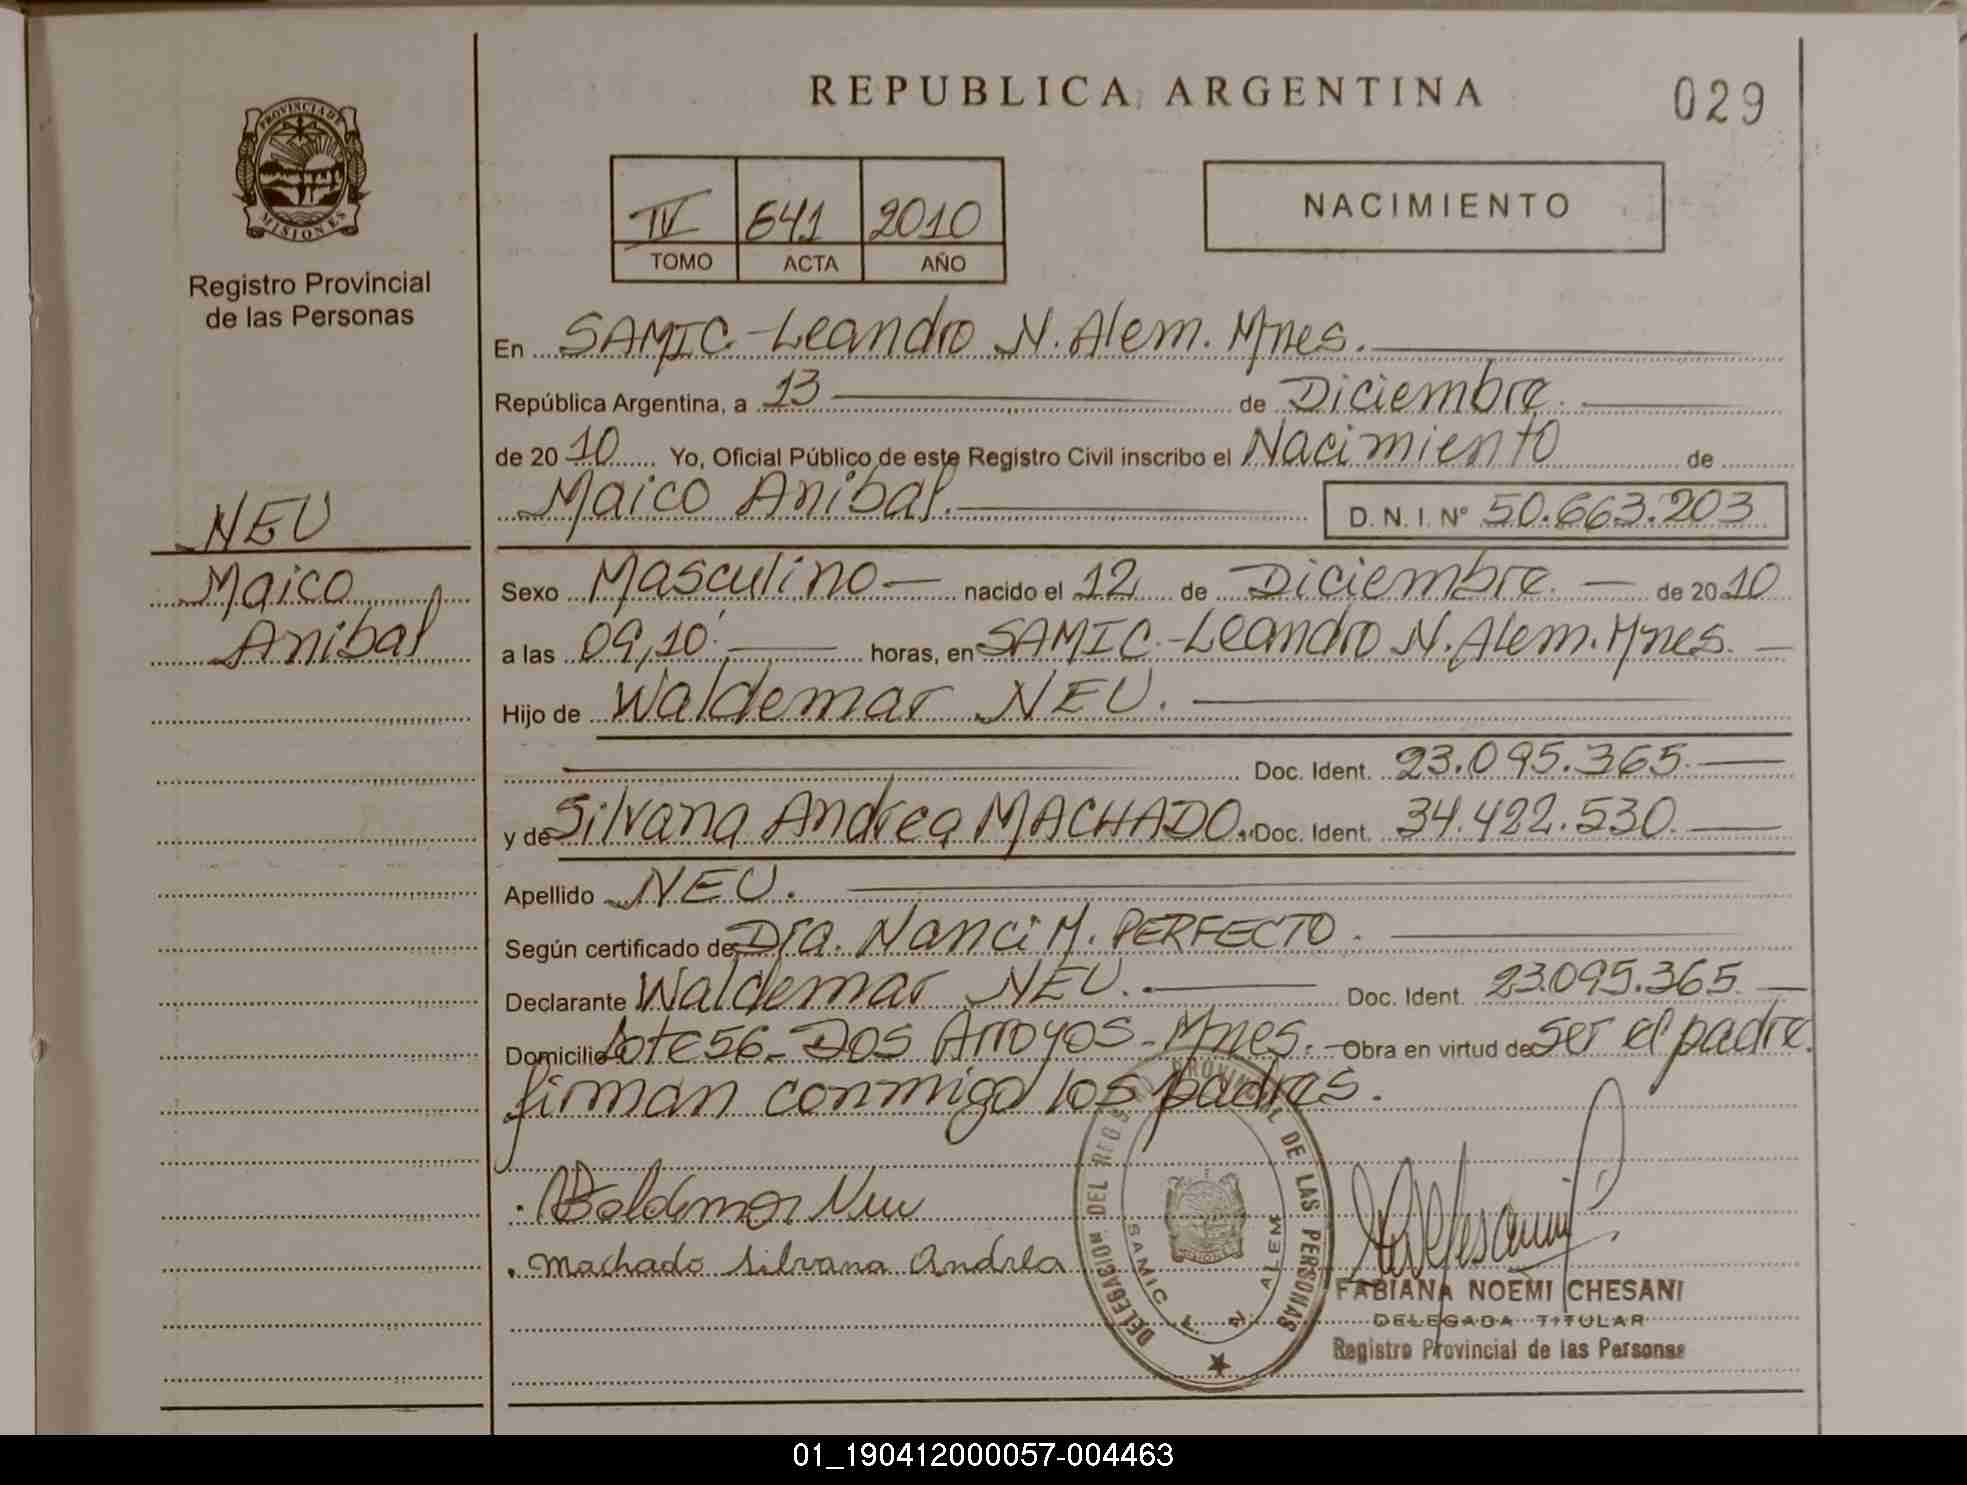 REPUBLICA ARGENTINA
029
PROVINCIA DE
MISIONES
Registro Provincial
de las Personas
IV 641 2010
TOMO ACTA AÑO
NACIMIENTO
En SAMIC-Leandro N. Alem. Mnes.
República Argentina, a 13 de Diciembre.
de 2010 Yo, Oficial Público de este Registro Civil inscribo el Nacimiento de
Maico Anibal. D.N.I. Nº 50.663.203
NEU
Maico
Anibal
Sexo Masculino nacido el 12 de Diciembre. de 2010
a las 09,10' horas, en SAMIC-Leandro N. Alem. Mnes.
Hijo de Waldemar NEU.
Doc. Ident. 23.095.365
y de Silvana Andrea MACHADO. Doc. Ident. 34.422.530
Apellido NEU.
Según certificado de Dra. Nanci M. PERFECTO.
Declarante Waldemar NEU. Doc. Ident. 23.095.365
Domicilio Lote 56-Dos Arroyos-Mnes. Obra en virtud de ser el padre.
firman conmigo los padres.
Waldemar Neu
Machado Silvana Andrea
DELEGACION DEL REGISTRO PROVINCIAL DE LAS PERSONAS
SAMIC L. N. ALEM
FABIANA NOEMI CHESANI
DELEGADA TITULAR
Registro Provincial de las Personas
01_190412000057-004463